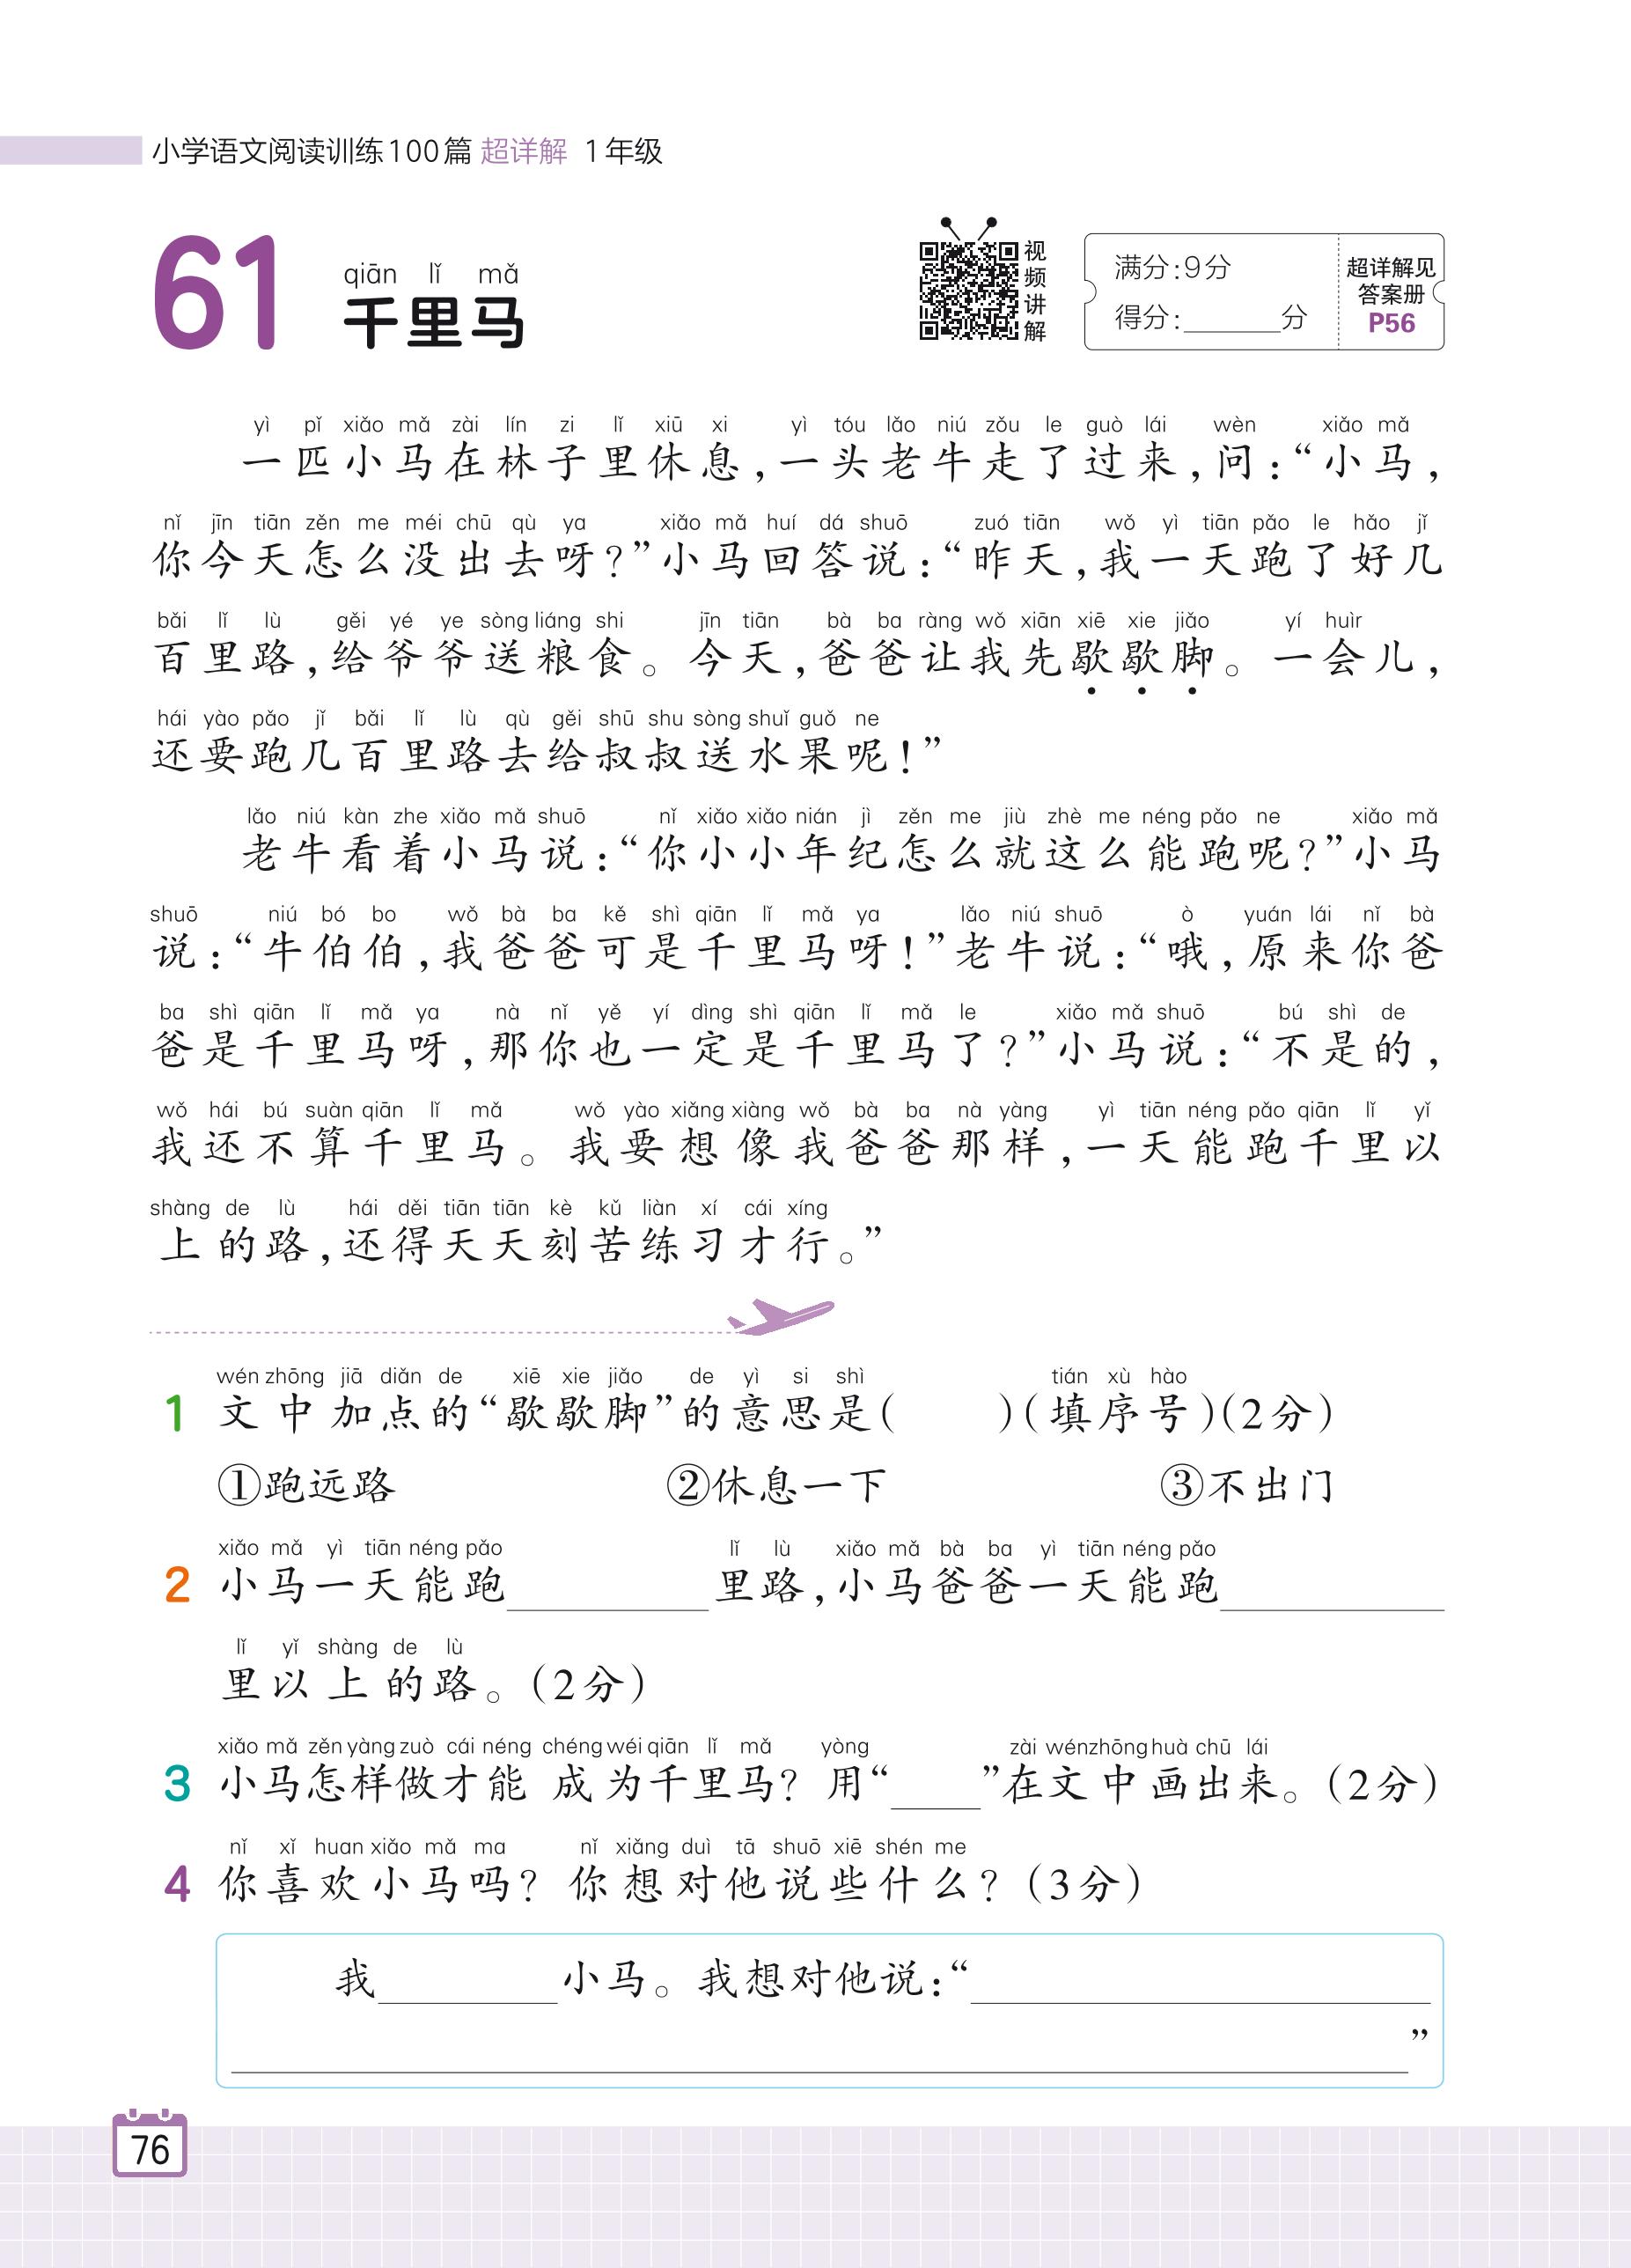 小学语文阅读训练100篇 超详解 1年级
61
qiān lǐ mǎ
千里马
视频讲解
满分:9分
得分:______分
超详解见
答案册
P56
yì pǐ xiǎo mǎ zài lín zi lǐ xiū xi yì tóu lǎo niú zǒu le guò lái wèn xiǎo mǎ
一匹小马在林子里休息,一头老牛走了过来,问:“小马,
nǐ jīn tiān zěn me méi chū qù ya xiǎo mǎ huí dá shuō zuó tiān wǒ yì tiān pǎo le hǎo jǐ
你今天怎么没出去呀?”小马回答说:“昨天,我一天跑了好几
bǎi lǐ lù gěi yé ye sòng liáng shi jīn tiān bà ba ràng wǒ xiān xiē xie jiǎo yí huìr
百里路,给爷爷送粮食。今天,爸爸让我先歇歇脚。一会儿,
hái yào pǎo jǐ bǎi lǐ lù qù gěi shū shu sòng shuǐ guǒ ne
还要跑几百里路去给叔叔送水果呢!”
lǎo niú kàn zhe xiǎo mǎ shuō nǐ xiǎo xiǎo nián jì zěn me jiù zhè me néng pǎo ne xiǎo mǎ
老牛看着小马说:“你小小年纪怎么就这么能跑呢?”小马
shuō niú bó bo wǒ bà ba kě shì qiān lǐ mǎ ya lǎo niú shuō ò yuán lái nǐ bà
说:“牛伯伯,我爸爸可是千里马呀!”老牛说:“哦,原来你爸
ba shì qiān lǐ mǎ ya nà nǐ yě yí dìng shì qiān lǐ mǎ le xiǎo mǎ shuō bú shì de
爸是千里马呀,那你也一定是千里马了?”小马说:“不是的,
wǒ hái bú suàn qiān lǐ mǎ wǒ yào xiǎng xiàng wǒ bà ba nà yàng yì tiān néng pǎo qiān lǐ yǐ
我还不算千里马。我要想像我爸爸那样,一天能跑千里以
shàng de lù hái děi tiān tiān kè kǔ liàn xí cái xíng
上的路,还得天天刻苦练习才行。”
wén zhōng jiā diǎn de xiē xie jiǎo de yì si shì tián xù hào
1 文中加点的“歇歇脚”的意思是( )(填序号)(2分)
①跑远路 ②休息一下 ③不出门
xiǎo mǎ yì tiān néng pǎo lǐ lù xiǎo mǎ bà ba yì tiān néng pǎo
2 小马一天能跑________里路,小马爸爸一天能跑________
lǐ yǐ shàng de lù
里以上的路。(2分)
xiǎo mǎ zěn yàng zuò cái néng chéng wéi qiān lǐ mǎ yòng zài wén zhōng huà chū lái
3 小马怎样做才能成为千里马?用“____”在文中画出来。(2分)
nǐ xǐ huan xiǎo mǎ ma nǐ xiǎng duì tā shuō xiē shén me
4 你喜欢小马吗?你想对他说些什么?(3分)
我________小马。我想对他说:“________________
________________________________”
76